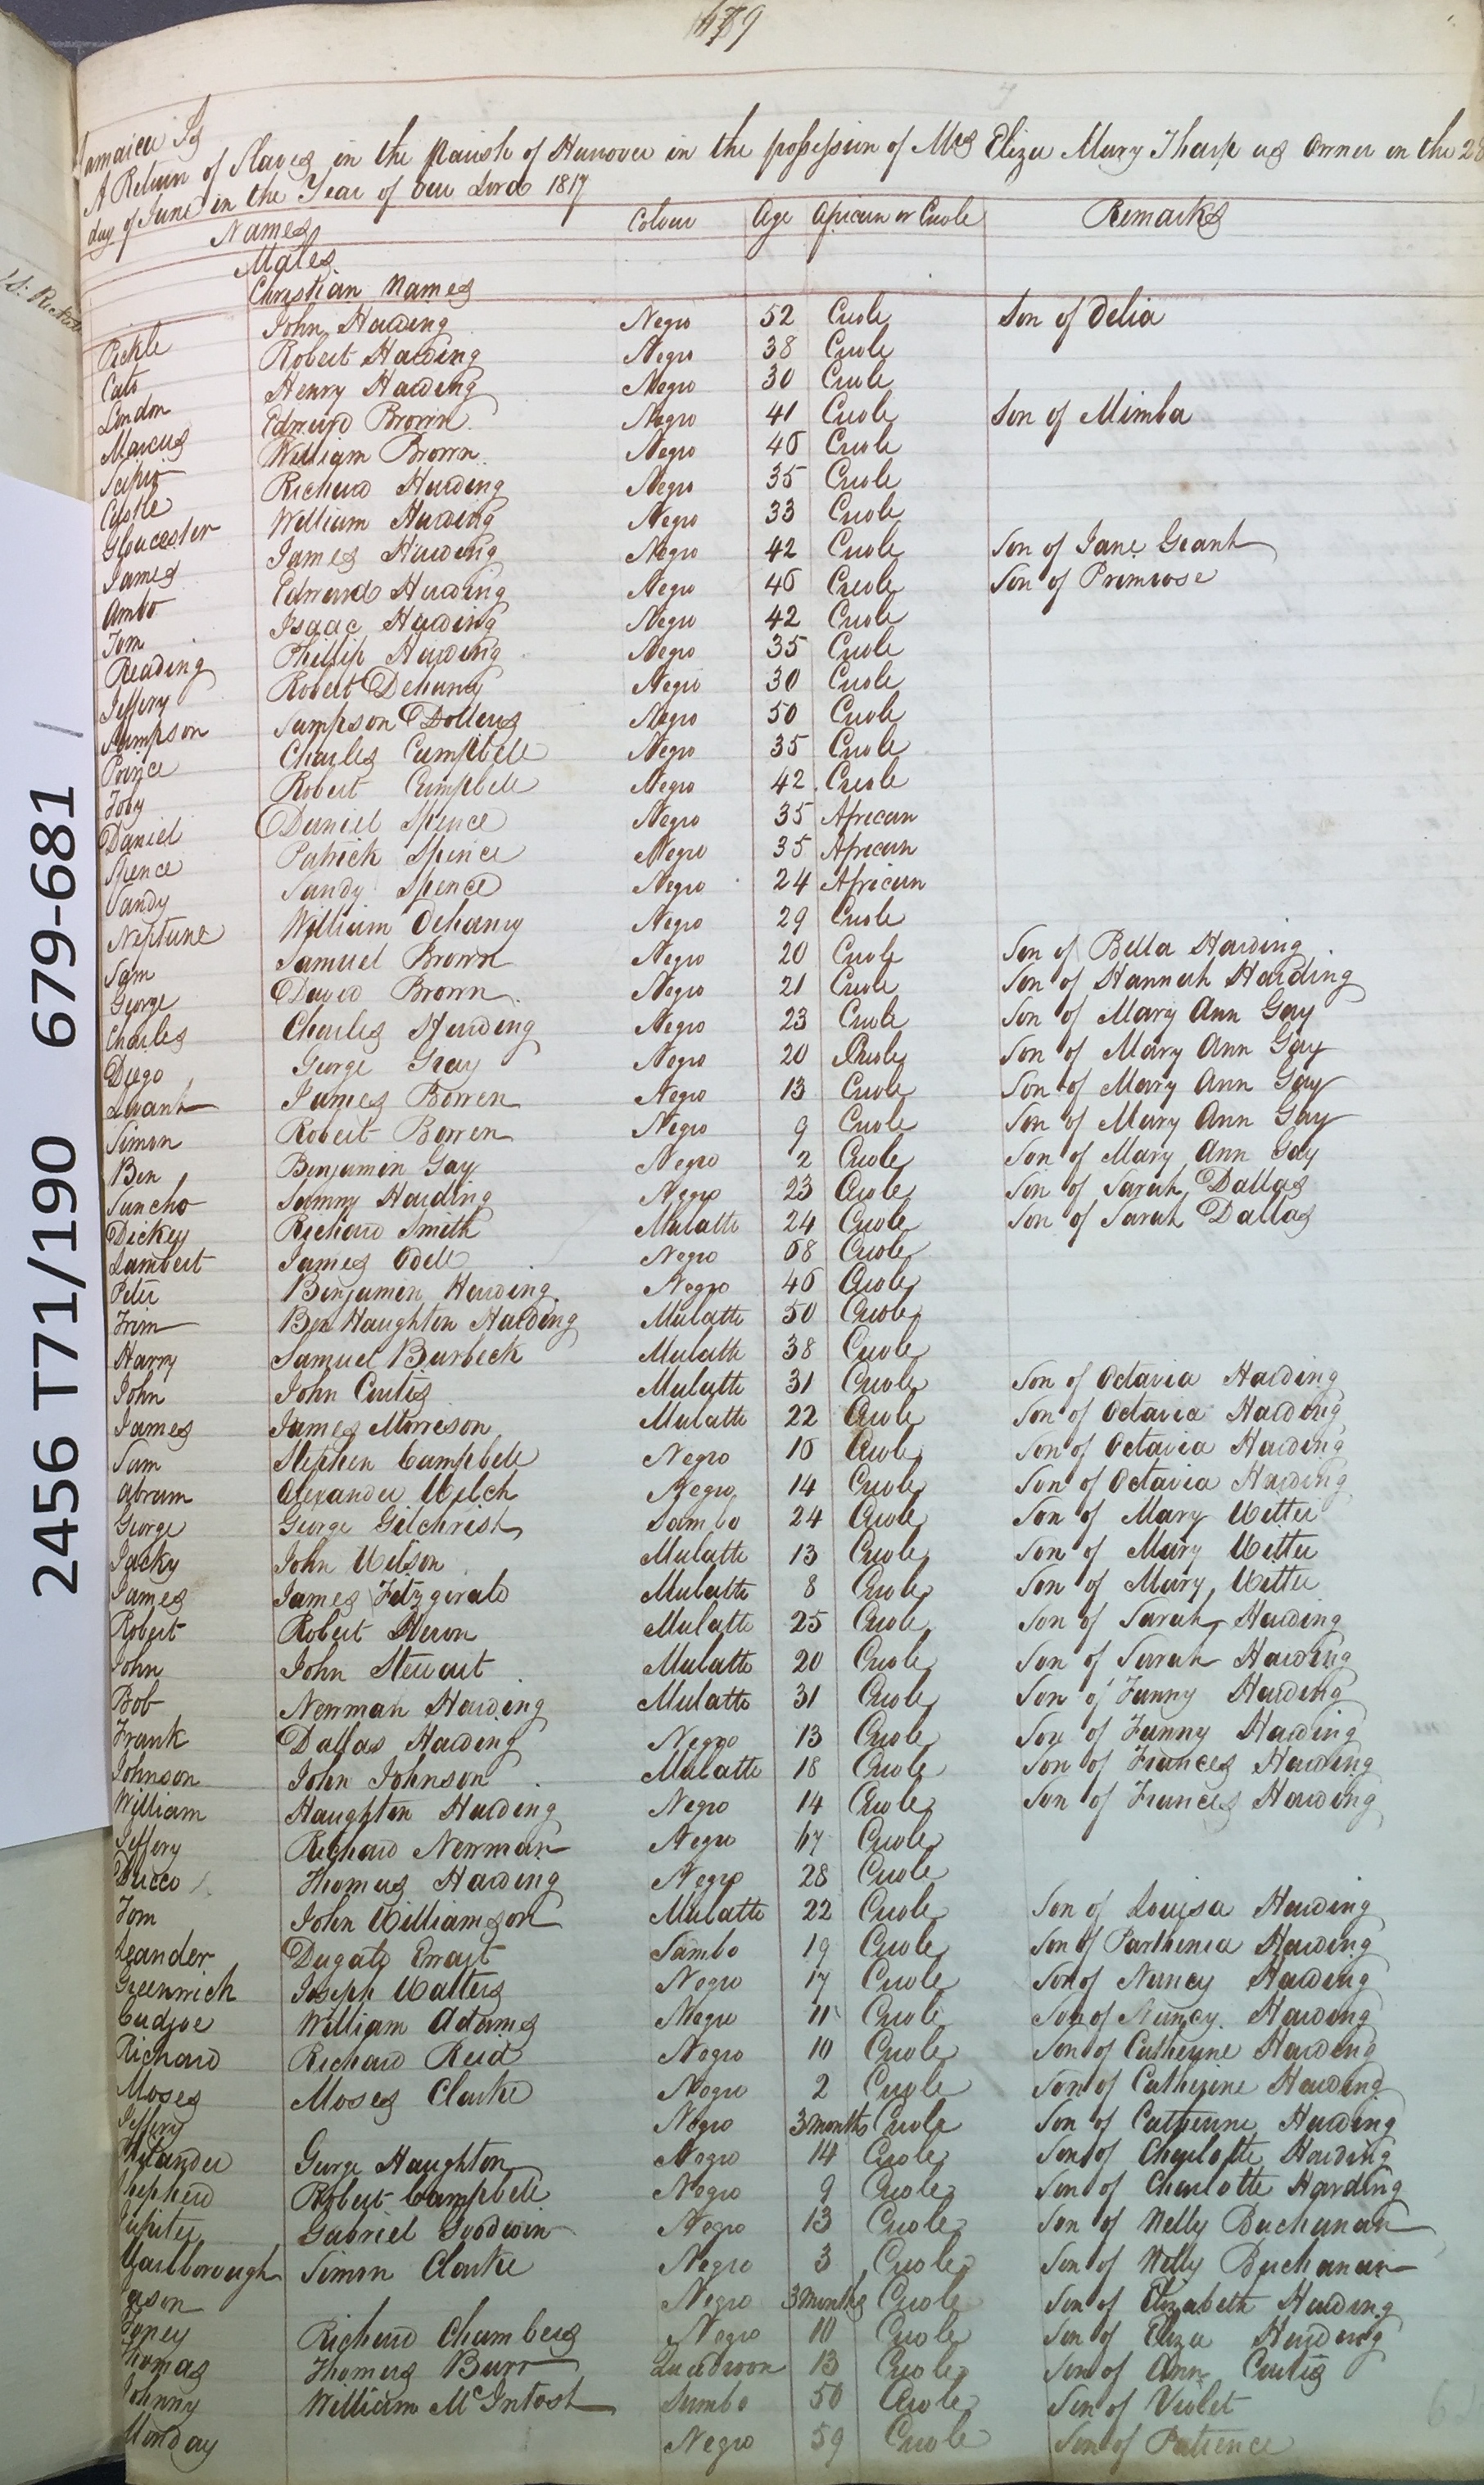 679
Jamaica Ss
A Return of Slaves in the Parish of Hanover in the possession of Mrs Eliza Mary Tharp as Owner on the 28
day of June in the Year of our Lord 1817
Names Colour Age African or Creole Remarks
Males
Christian Names
Pickle John Harding Negro 52 Creole Son of Delia
Cato Robert Harding Negro 38 Creole
London Henry Harding Negro 30 Creole
Marcus Edward Brown Negro 41 Creole Son of Mimba
Scipio William Brown Negro 40 Creole
Castle Richard Harding Negro 35 Creole
Gloucester William Harding Negro 33 Creole
James James Harding Negro 42 Creole Son of Jane Grant
Ambo Edward Harding Negro 40 Creole Son of Primrose
Tom Isaac Harding Negro 42 Creole
Reading Phillip Harding Negro 35 Creole
Jeffery Robert Dehany Negro 30 Creole
Sampson Sampson Negro 50 Creole
Prince Charles Campbell Negro 35 Creole
Toby Robert Campbell Negro 42 Creole
Daniel Daniel Spence Negro 35 African
Spence Patrick Spence Negro 35 African
Sandy Sandy Spence Negro 24 African
Neptune William Dehany Negro 29 Creole
Sam Samuel Brown Negro 20 Creole Son of Bella Harding
George David Brown Negro 21 Creole Son of Hannah Harding
Charles Charles Harding Negro 23 Creole Son of Mary Ann Gay
Diego George Gray Negro 20 Creole Son of Mary Ann Gay
Quant James Bowen Negro 13 Creole Son of Mary Ann Gay
Simon Robert Bowen Negro 9 Creole Son of Mary Ann Gay
Ben Benjamin Gay Negro 2 Creole Son of Mary Ann Gay
Sancho Sammy Harding Negro 23 Creole Son of Sarah Dallas
Dickey Richard Smith Mulatto 24 Creole Son of Sarah Dallas
Lambert James Odell Negro 68 Creole
Peter Benjamin Harding Negro 40 Creole
Trim Ben Haughton Harding Mulatto 50 Creole
Harry Samuel Burbeck Mulatto 38 Creole
John John Curtis Mulatto 31 Creole Son of Octavia Harding
James James Morrison Mulatto 22 Creole Son of Octavia Harding
Sam Stephen Campbell Negro 10 Creole Son of Octavia Harding
Abram Alexander Welch Negro 14 Creole Son of Octavia Harding
George George Gilchrist Sambo 24 Creole Son of Mary Witter
Jacky John Wilson Mulatto 13 Creole Son of Mary Witter
James James Fitzgerald Mulatto 8 Creole Son of Mary Witter
Robert Robert Heron Mulatto 25 Creole Son of Sarah Harding
John John Stewart Mulatto 20 Creole Son of Sarah Harding
Bob Newman Harding Mulatto 31 Creole Son of Fanny Harding
Frank Dallas Harding Negro 13 Creole Son of Fanny Harding
Johnson John Johnson Mulatto 18 Creole Son of Frances Harding
William Haughton Harding Negro 14 Creole Son of Frances Harding
Jeffery Richard Newman Negro 67 Creole
Thomas Harding Negro 28 Creole
Tom John Williamson Mulatto 22 Creole Son of Louisa Harding
Leander Dugald Sambo 19 Creole Son of Parthenia Harding
Greenwich Joseph Walters Negro 17 Creole Son of Nancy Harding
Cudjoe William Adams Negro 11 Creole Son of Nancy Harding
Richard Richard Reid Negro 10 Creole Son of Catherine Harding
Moses Moses Clarke Negro 2 Creole Son of Catherine Harding
Jeffery Negro 3 months Creole Son of Catherine Harding
Philander George Haughton Negro 14 Creole Son of Charlotte Harding
Shepherd Robert Campbell Negro 9 Creole Son of Charlotte Harding
Jupiter Gabriel Goodwin Negro 13 Creole Son of Nelly Buchanan
Marlborough Simon Clarke Negro 3 Creole Son of Nelly Buchanan
Jason Negro 3 months Creole Son of Elizabeth Harding
Richard Chambers Negro 10 Creole Son of Eliza Harding
Thomas Thomas Burr Quadroon 13 Creole Son of Ann Curtis
Johnny William McIntosh Sambo 50 Creole Son of Violet
Monday Negro 59 Creole Son of Patience
2456 T71/190 679-681